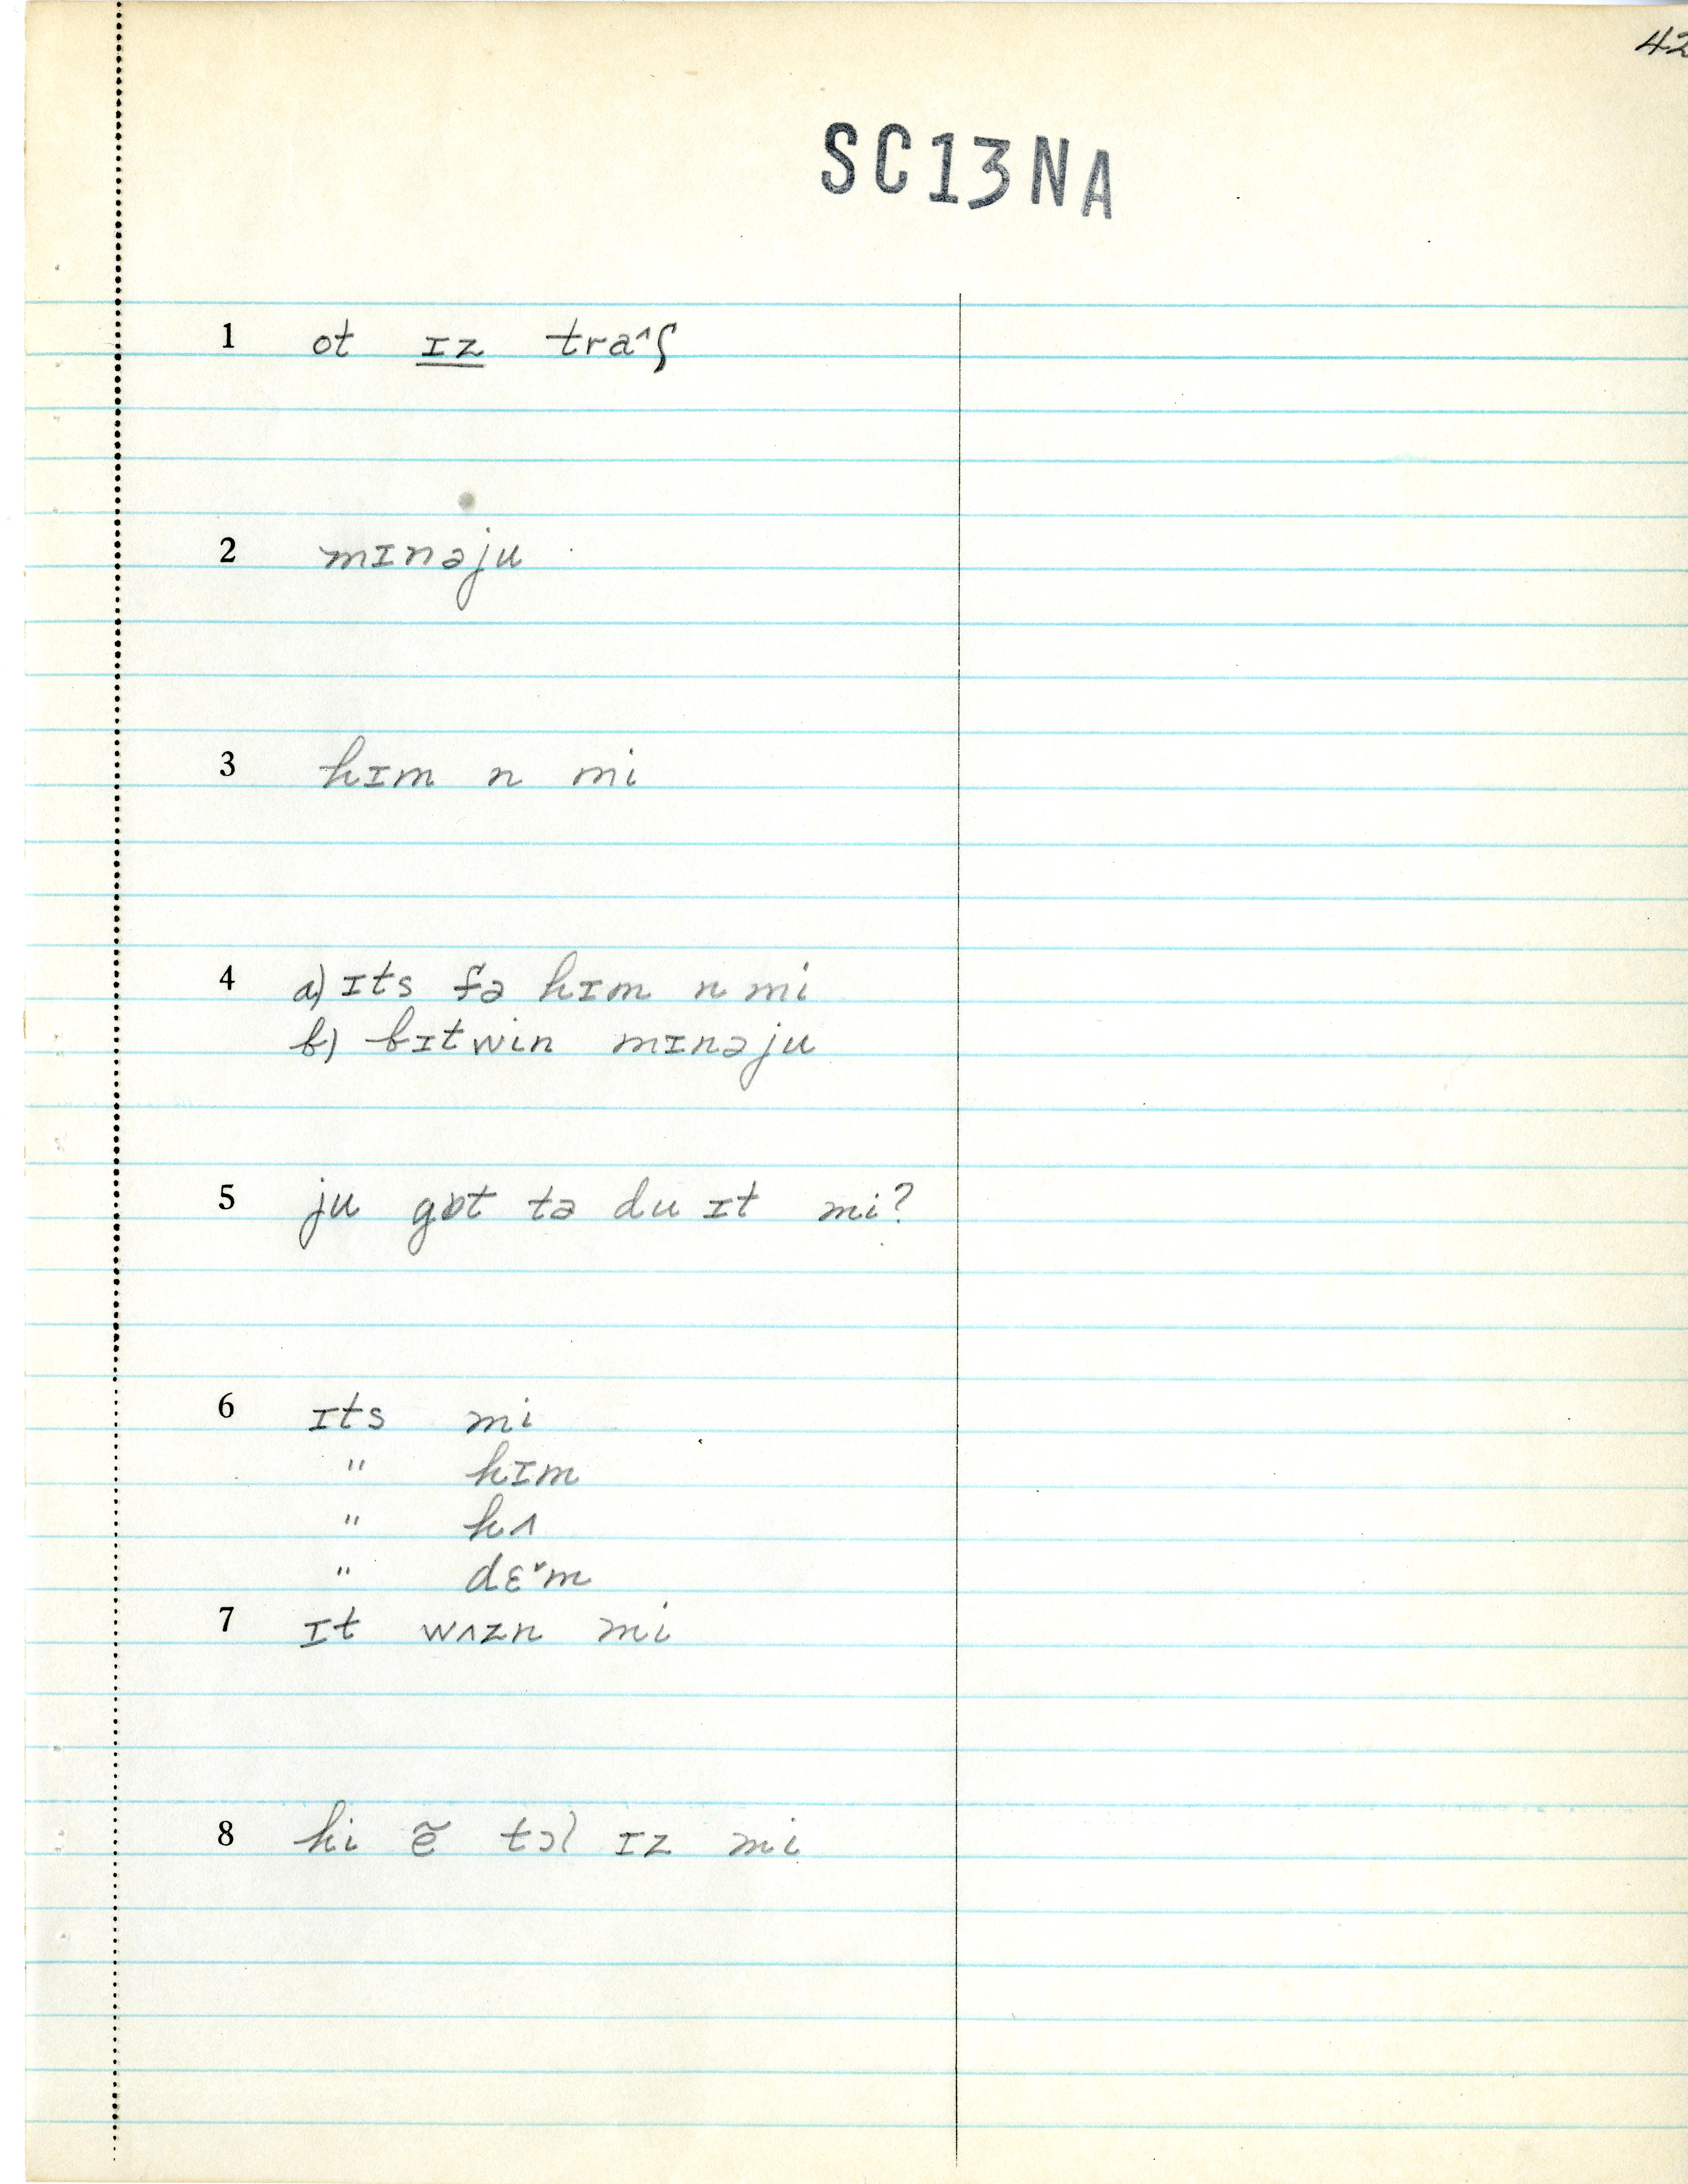 42
SC13NA
1 ot ɪz traˆʃ
2 mɪnəju
3 hɪm n mi
4 a) ɪts fə hɪm n mi
b) bɪtwin mɪnəju
5 ju gɒt tə du ɪt mi?
6 ɪts mi
" hɪm
" hʌ
" dɛ˅m
7 ɪt wʌzn mi
8 hi ẽ tɔl ɪz mi